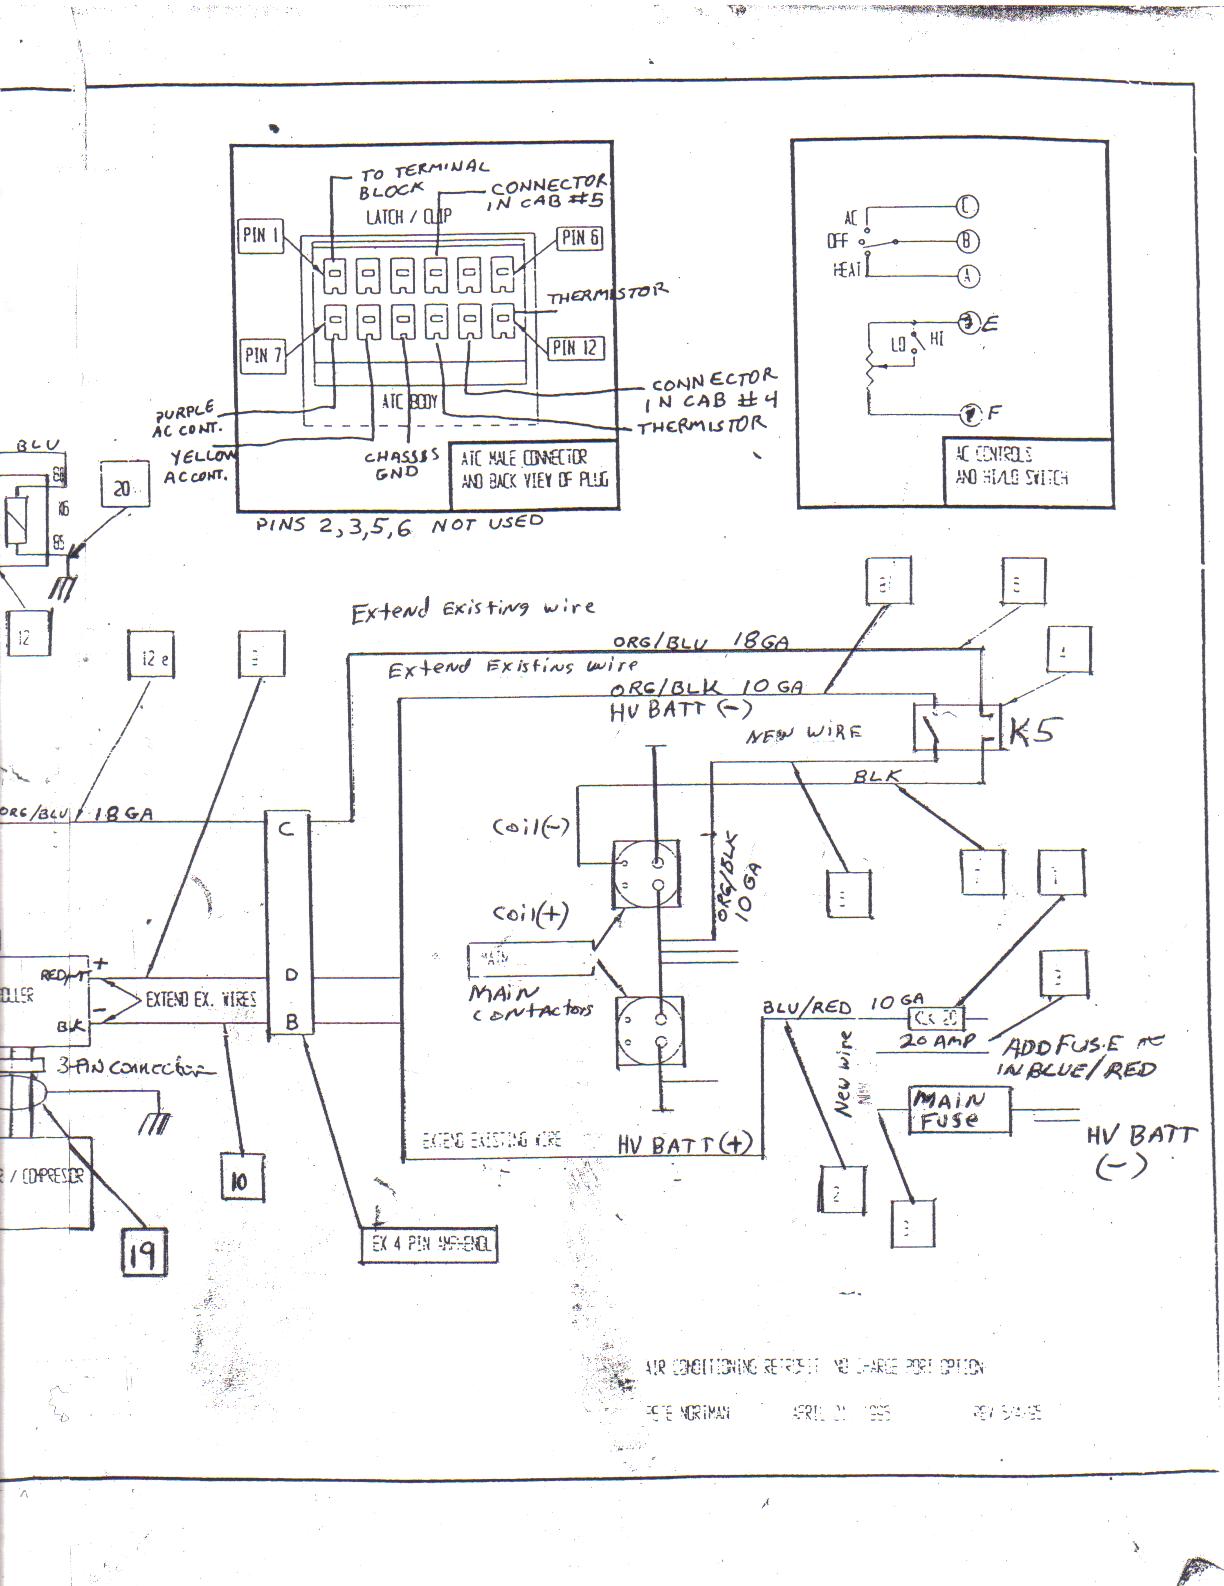 TO TERMINAL
BLOCK
CONNECTOR
IN CAB #5
LATCH / CLIP
PIN 1
PIN 6
THERMISTOR
PIN 7
PIN 12
CONNECTOR
IN CAB #4
THERMISTOR
ATC BODY
PURPLE
AC CONT.
YELLOW
AC CONT.
CHASSIS
GND
ATC MALE CONNECTOR
AND BACK VIEW OF PLUG
PINS 2,3,5,6 NOT USED
AC
OFF
HEAT
C
B
A
LO
HI
E
F
AC CONTROLS
AND HI/LO SWITCH
BLU
K6
85
20
12
12 e
3
Extend Existing wire
ORG/BLU 18GA
Extend Existing wire
ORG/BLK 10 GA
HV BATT (-)
4
K5
NEW WIRE
BLK
ORG/BLU 18GA
C
Coil(-)
ORG/BLK
10 GA
Coil(+)
MAIN
MAIN
CONTACTORS
RED/WT
+
OLLER
EXTEND EX. WIRES
-
BLK
D
B
3-PIN CONNECTOR
BLU/RED 10 GA
20 AMP
ADD FUSE
IN BLUE/RED
New wire
MAIN
FUSE
HV BATT
(-)
EXTEND EXISTING WIRE
HV BATT (+)
/ COMPRESOR
10
2
3
19
EX 4 PIN AMPHENOL
AIR CONDITIONING RETROFIT NO CHARGE PORT OPTION
PETE NORTMAN
APRIL 21 1995
REV 5/4/95